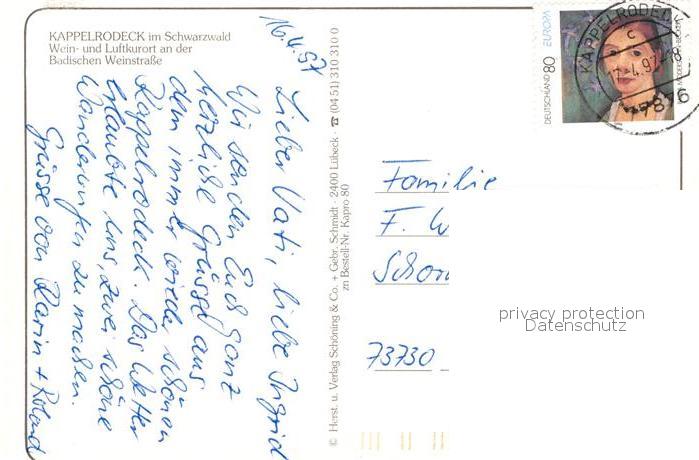 KAPPELRODECK im Schwarzwald
Wein- und Luftkurort an der
Badischen Weinstraße
16.4.97
Lieber Vati, liebe Ingrid
Wir senden Euch ganz
herzliche Grüsse aus
dem immer wieder schönen
Kappelrodeck. Das Wetter
erlaubte uns, zwei schöne
Wanderungen zu machen.
Grüsse von Karin + Roland
© Herst. u. Verlag Schöning & Co. + Gebr. Schmidt · 2400 Lübeck · ☎ (04 51) 310 310 0
zu Bestell-Nr. Kapro 80
DEUTSCHLAND 80 EUROPA
KAPPELRODECK
c
17.4.97-8
77876
Familie
F. W
Schor
73730
privacy protection
Datenschutz